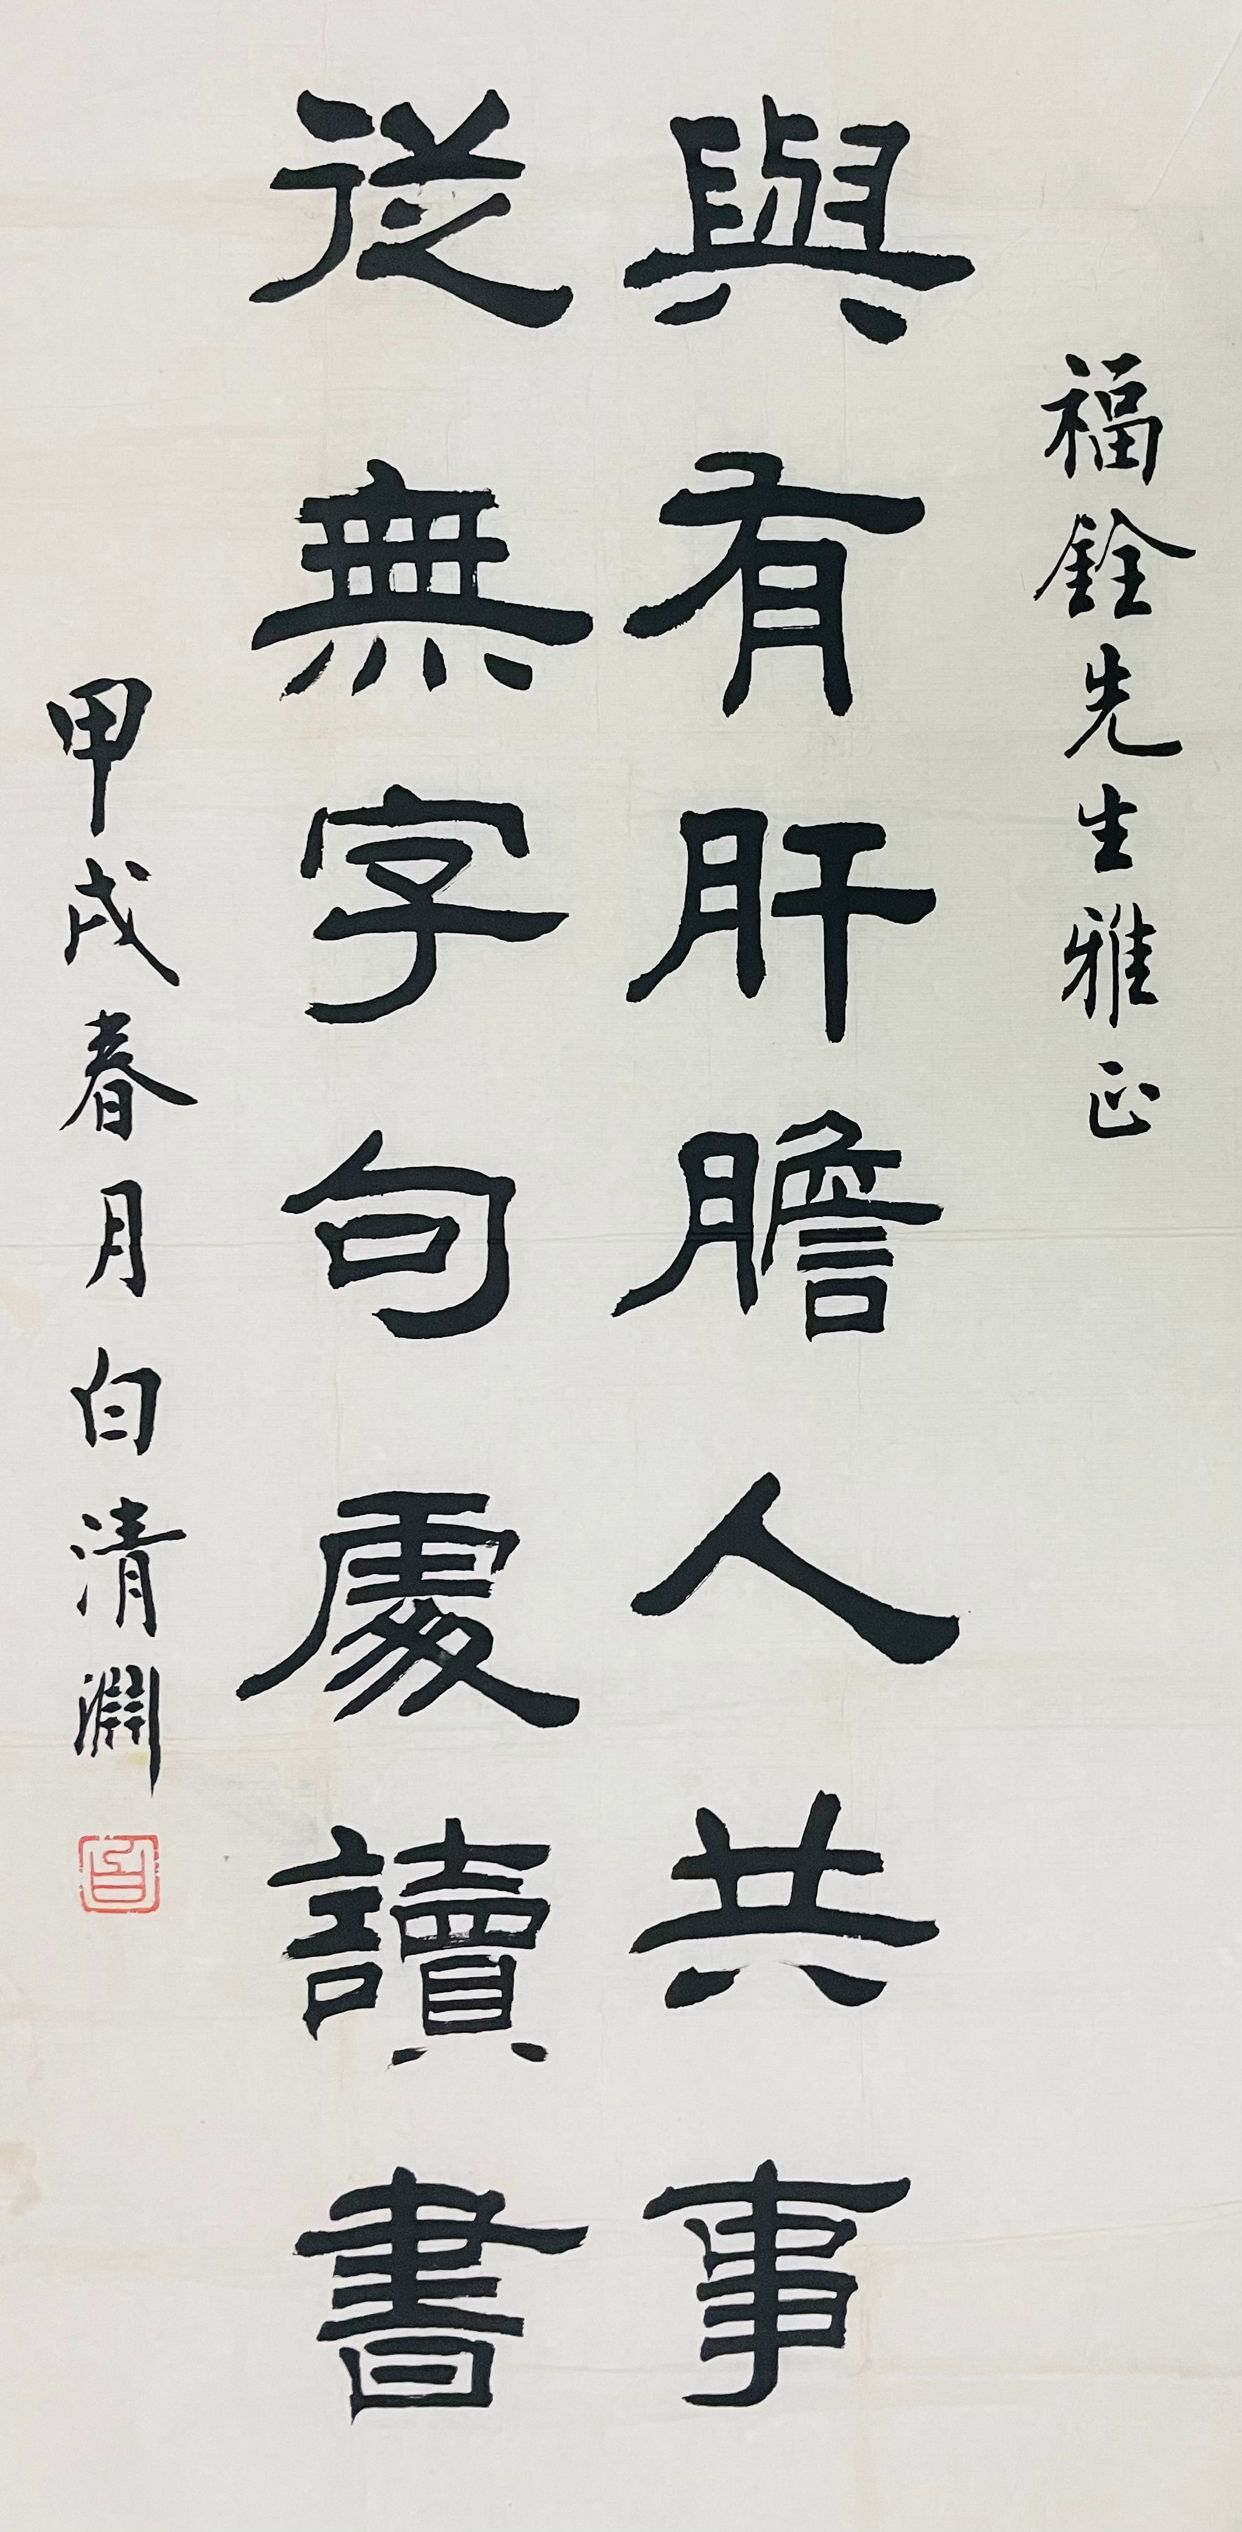 福銓先生雅正
與有肝膽人共事
從無字句處讀書
甲戌春月白清淵